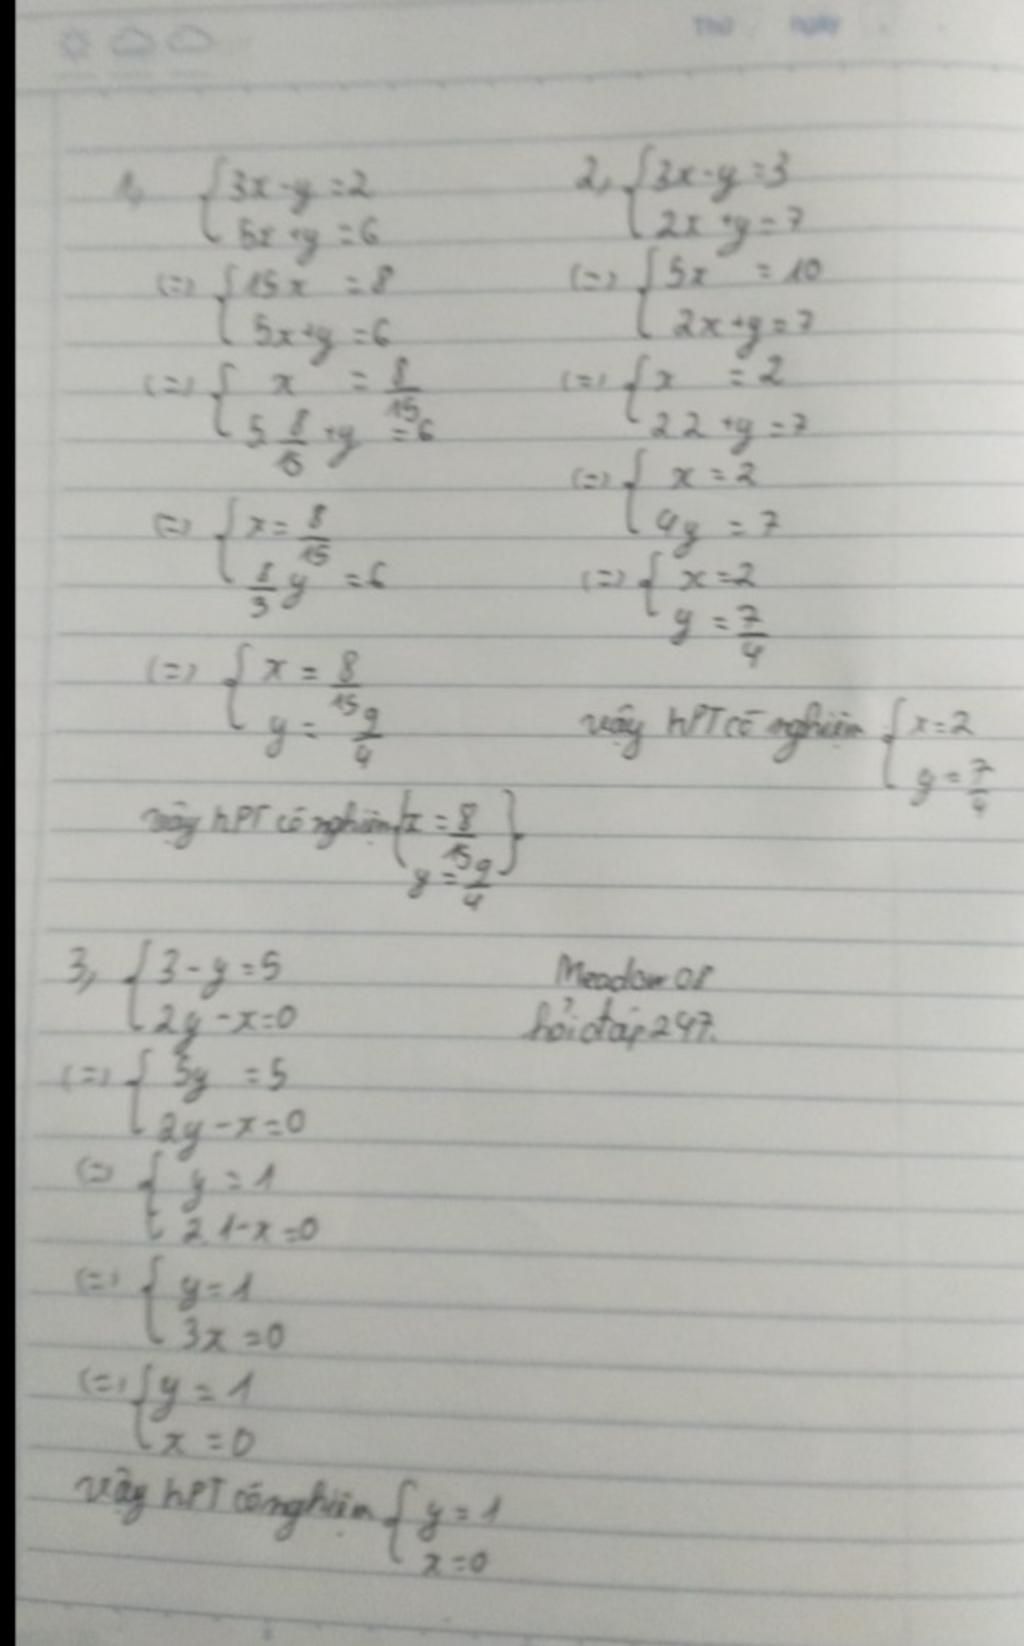 THỨ NGÀY
1, { 3x - y = 2
5x + y = 6
(=) { 15x = 8
5x + y = 6
(=) { x = 8/15
5 8/15 + y = 6
(=) { x = 8/15
8/3 y = 6
(=) { x = 8/15
y = 9/4
vậy hPT có nghiệm { x = 8/15
y = 9/4 }
2, { 3x - y = 3
2x + y = 7
(=) { 5x = 10
2x + y = 7
(=) { x = 2
2 2 + y = 7
(=) { x = 2
4y = 7
(=) { x = 2
y = 7/4
vậy hPT có nghiệm { x = 2
y = 7/4
3, { 3 - y = 5
2y - x = 0
(=) { 5y = 5
2y - x = 0
(=) { y = 1
2.1 - x = 0
(=) { y = 1
3x = 0
(=) { y = 1
x = 0
vậy hPT có nghiệm { y = 1
x = 0
Meadow 08
hỏi đáp 247.